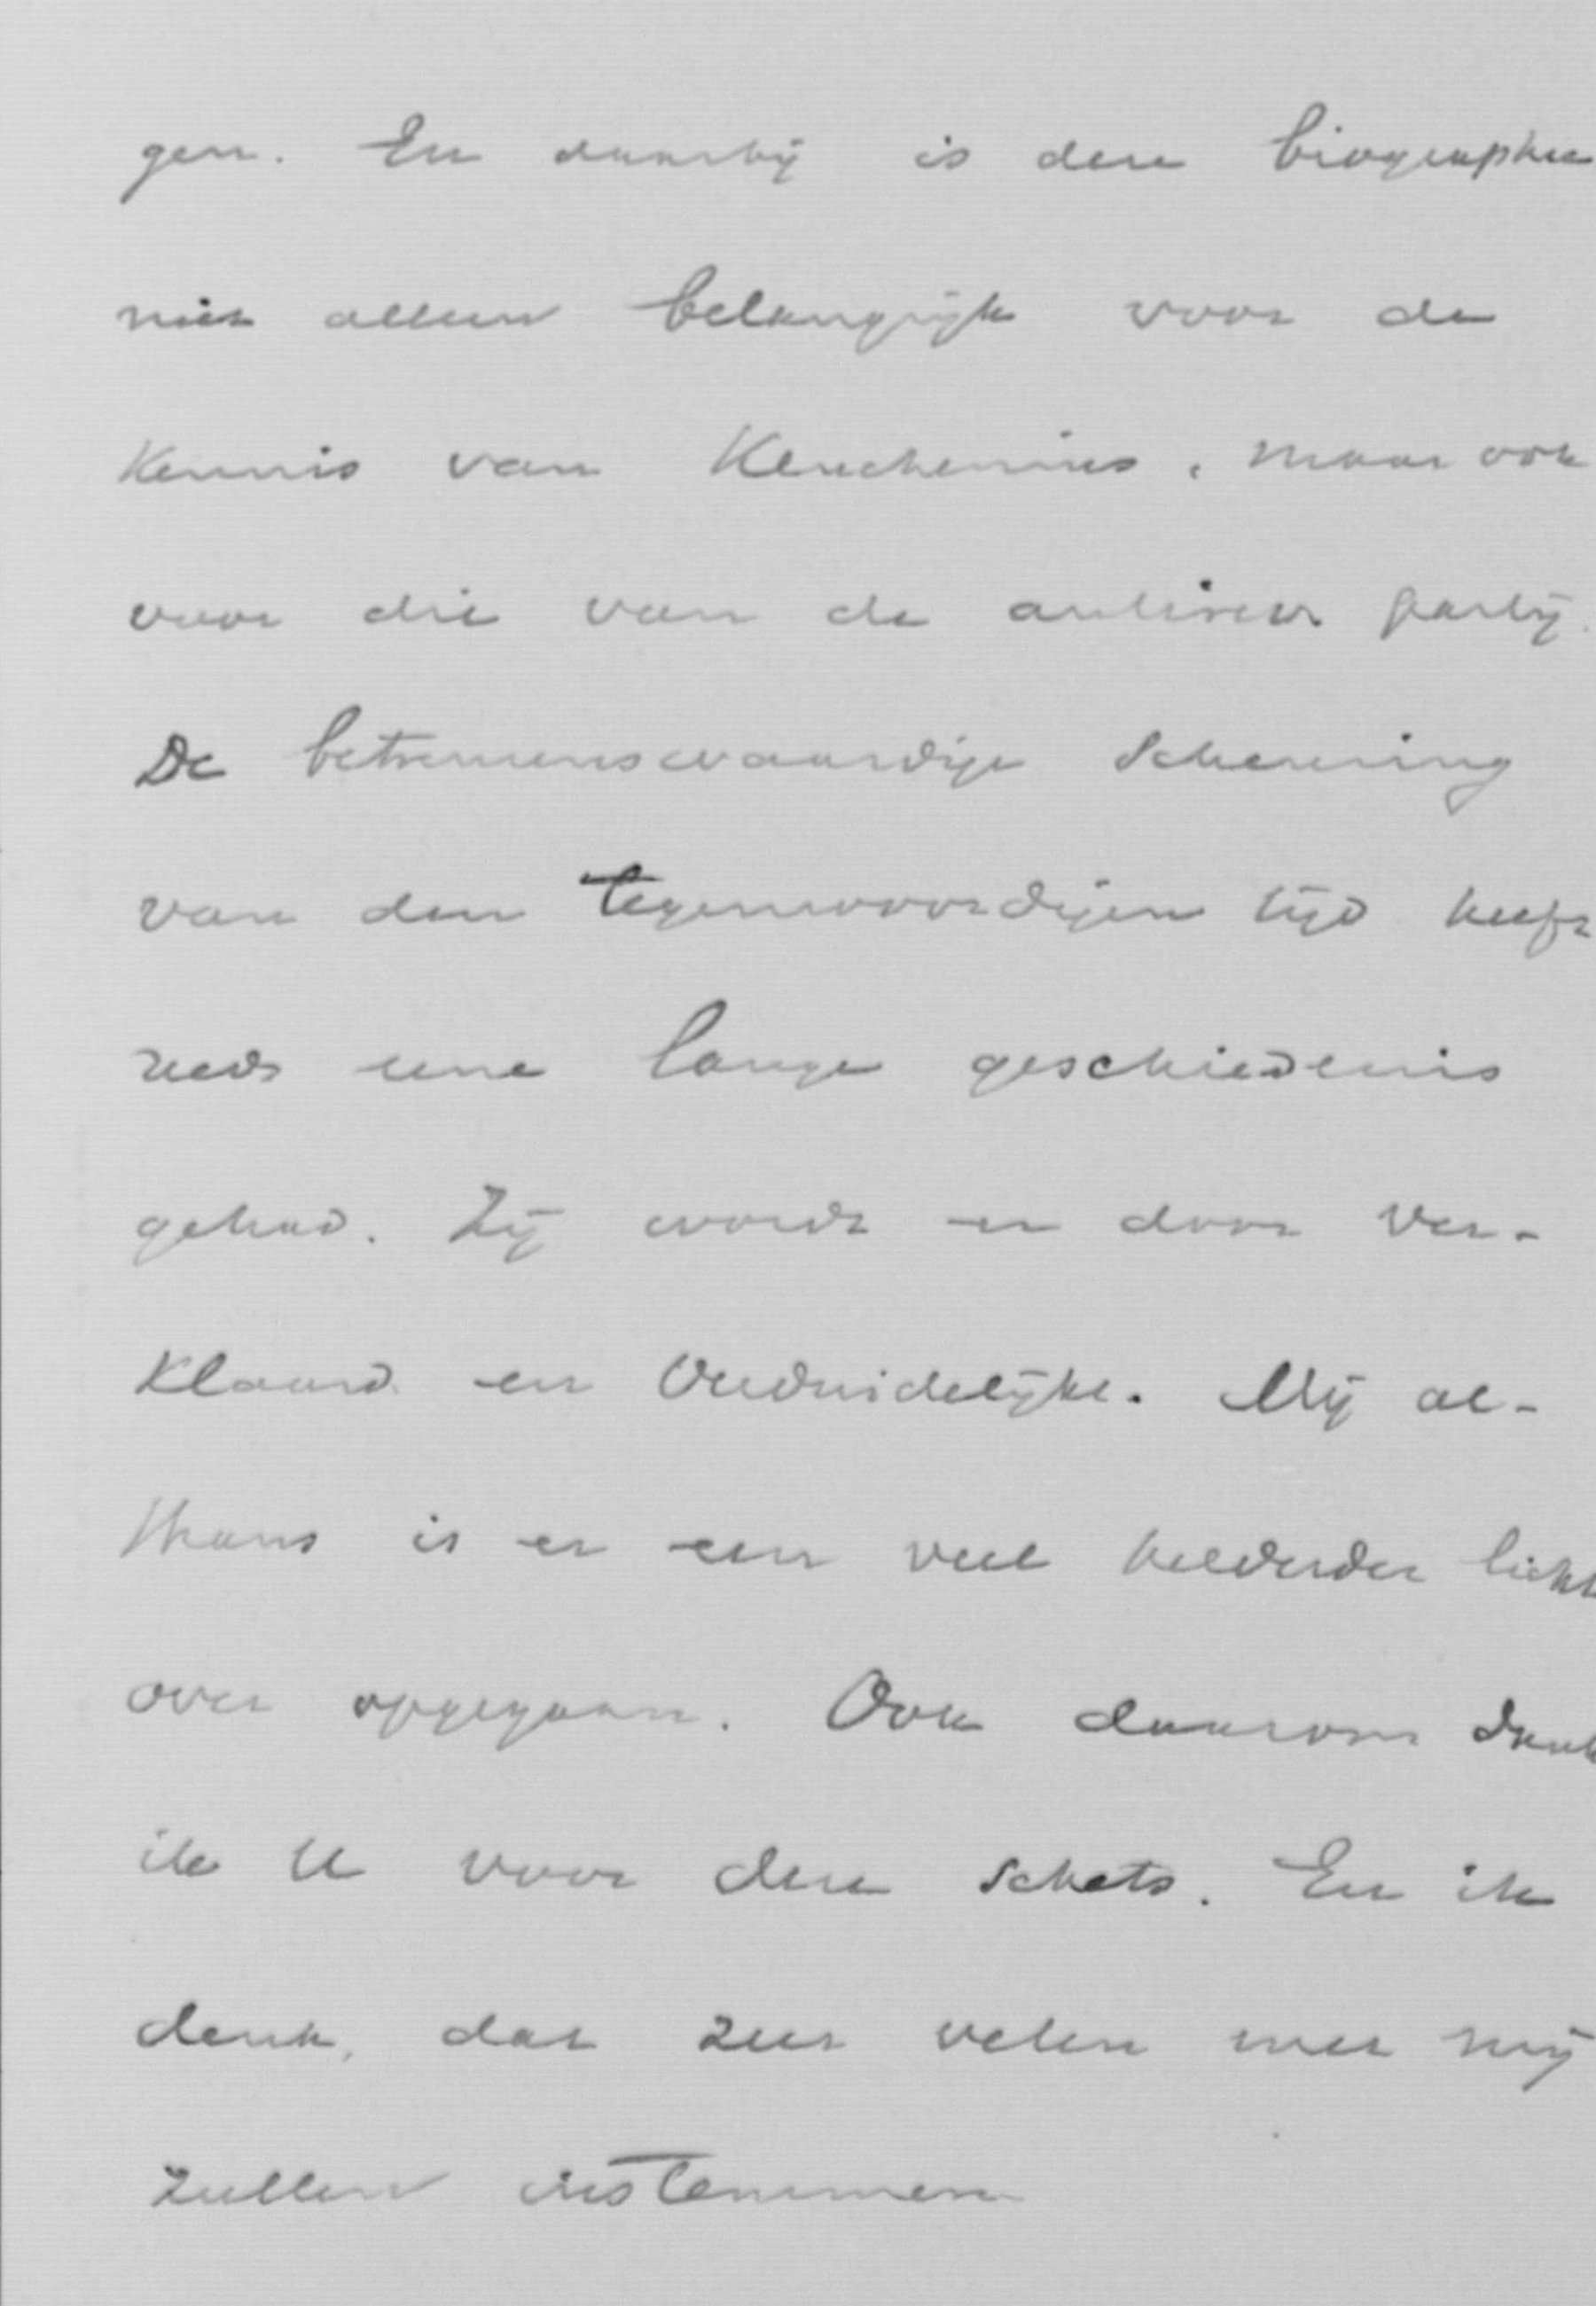 gen. En daarbij is deze biographie
niet alleen belangrijk voor de
Kennis van Keuchenius, maar ook
voor die van de antirev. partij.
De betreurenswaardige scheuring
van den tegenwoordigen tijd heeft
reeds eene lange geschiedenis
gehad. Zij wordt er door ver-
klaard en verduidelijkt. Mij al-
thans is er een veel helderder licht
over opgegaan. Ook daarom dank
ik U voor deze schets. En ik
denk, dat zeer velen met mij
zullen instemmen